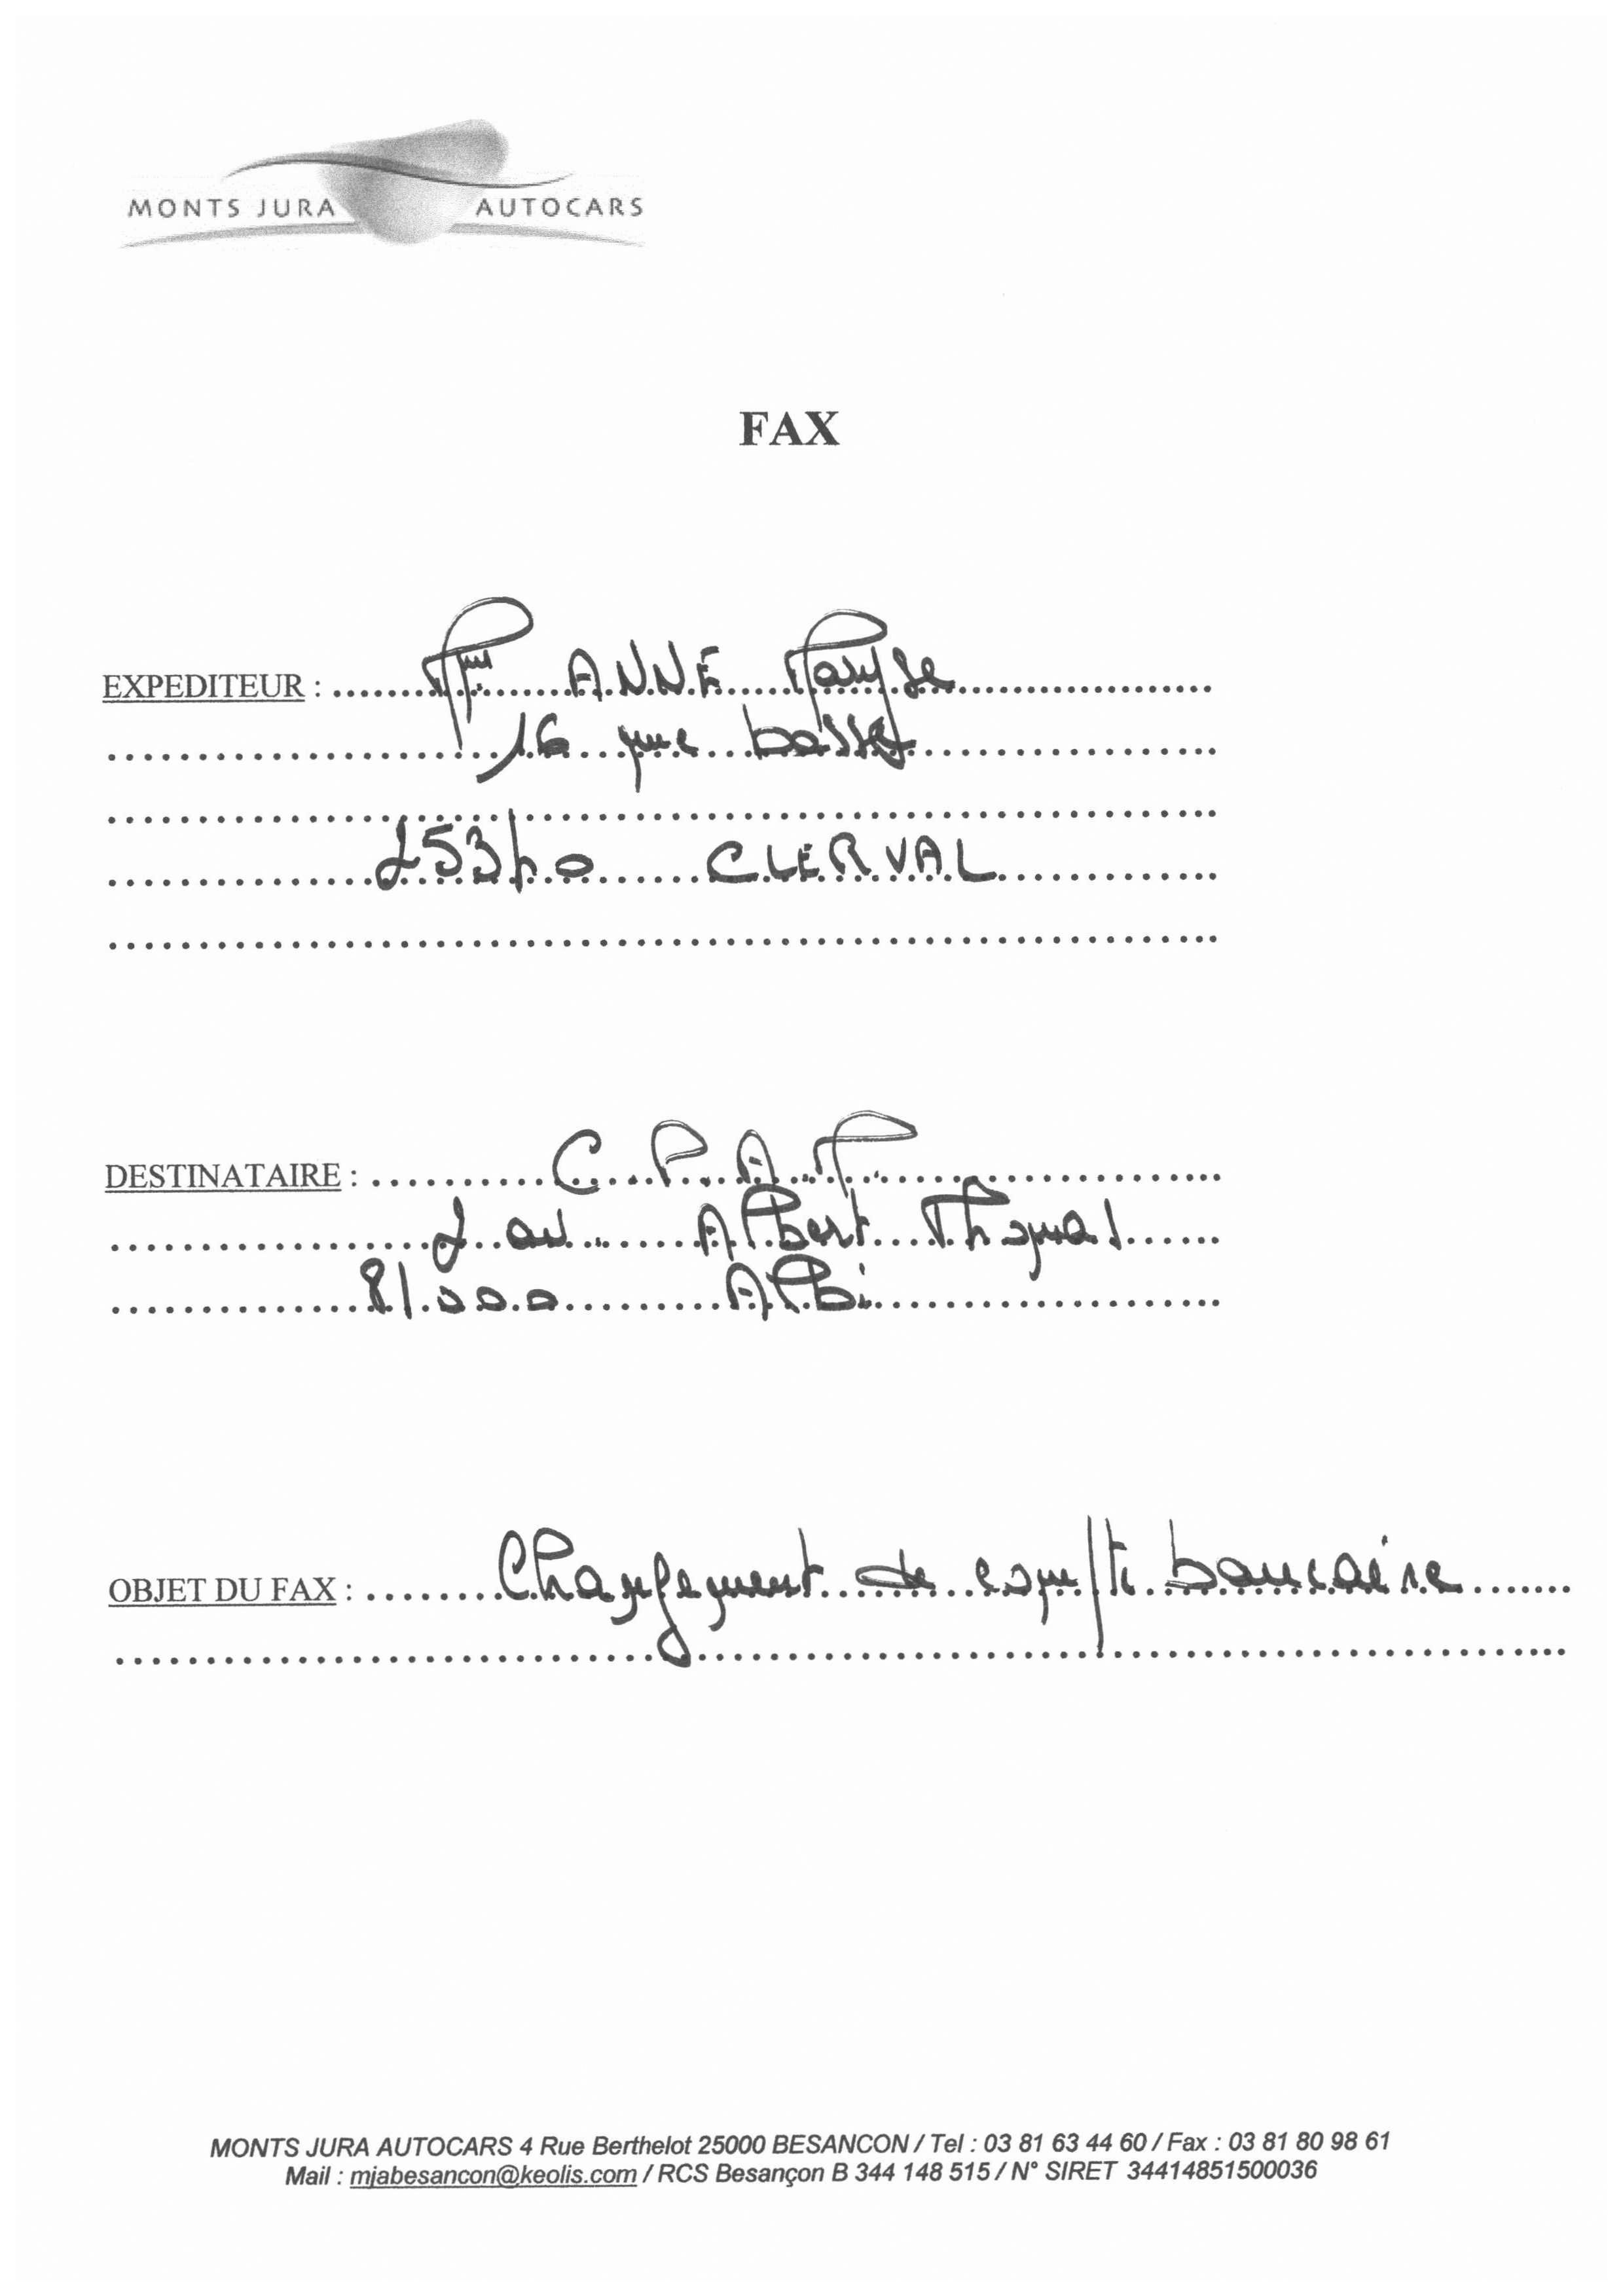 MONTS JURA AUTOCARS
FAX
EXPEDITEUR : Mme ANNE Maryse
16 rue basse
25340 CLERVAL
DESTINATAIRE : C.P.A.M.
2 av. Albert Thomas
81000 Albi
OBJET DU FAX : Changement de compte bancaire
MONTS JURA AUTOCARS 4 Rue Berthelot 25000 BESANCON / Tel : 03 81 63 44 60 / Fax : 03 81 80 98 61
Mail : mjabesancon@keolis.com / RCS Besançon B 344 148 515 / N° SIRET 34414851500036